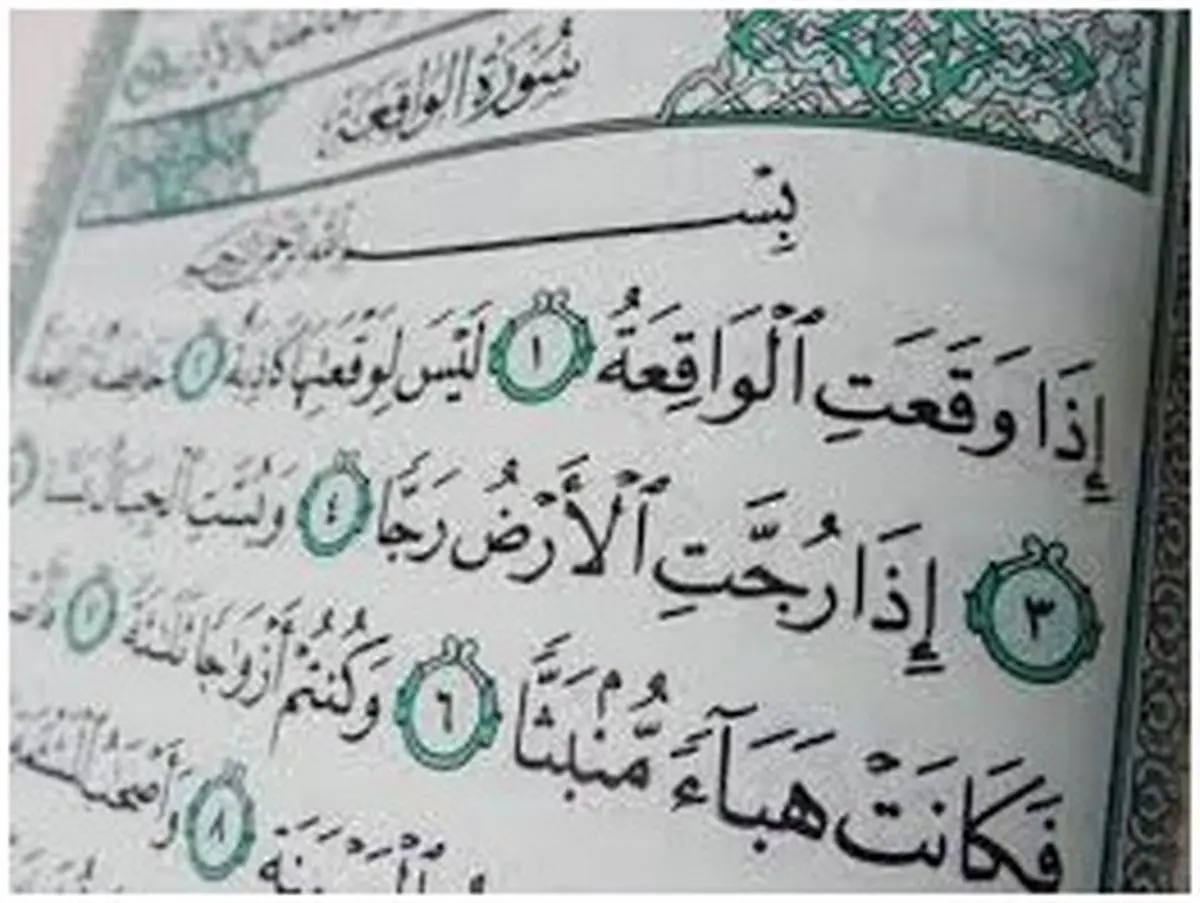 سُورَةُ الْوَاقِعَةِ
بِسْمِ اللَّهِ الرَّحْمَٰنِ الرَّحِيمِ
إِذَا وَقَعَتِ ٱلْوَاقِعَةُ ١ لَيْسَ لِوَقْعَتِهَا كَاذِبَةٌ ٢ خَافِضَةٌ رَّافِعَةٌ
٣ إِذَا رُجَّتِ ٱلْأَرْضُ رَجًّا ٤ وَبُسَّتِ ٱلْجِبَالُ بَسًّا
فَكَانَتْ هَبَآءً مُّنۢبَثًّا ٦ وَكُنتُمْ أَزْوَٰجًا ثَلَٰثَةً ٧
٨ وَأَصْحَٰبُ ٱلْمَشْـَٔمَةِ